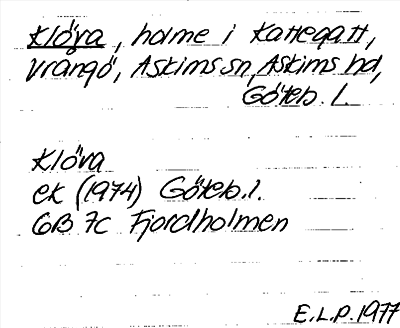 Klöva, holme i Kattegatt,
Vrångö, Askims sn, Askims hd,
Göteb. l.
Klöva
ek (1974) Göteb. l.
6B 7c Fjordholmen
E.L.P. 1977